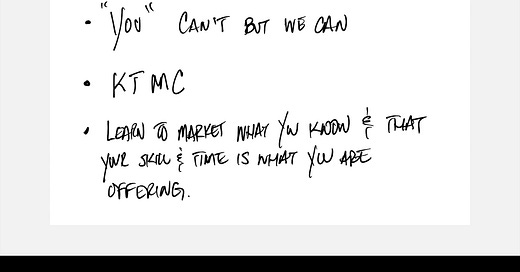 • "You" CAN'T BUT WE CAN
• KTMC
• LEARN TO MARKET WHAT YOU KNOW & THAT
YOUR SKILL & TIME IS WHAT YOU ARE
OFFERING.